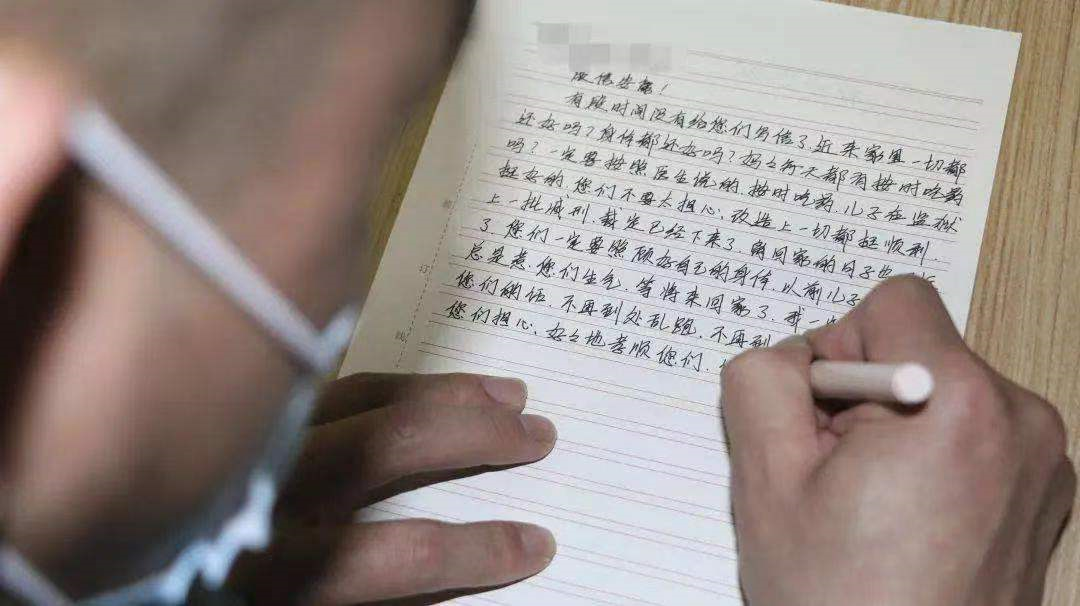 展信安康！
有段时间没有给您们写信了,近来家里一切都
还好吗?身体都还好吗?妈々每天都有按时吃药
吗?一定要按照医生说的,按时吃药,儿子在监狱
挺好的,您们不要太担心,改造上一切都挺顺利.
上一批减刑,裁定已经下来了,离回家的日子也近
了,您们一定要照顾好自己的身体,以前儿子
总是惹您们生气,等将来回家了,我一
您们的话,不再到处乱跑,不再
您们担心,好々地孝顺您们,
装
订
线